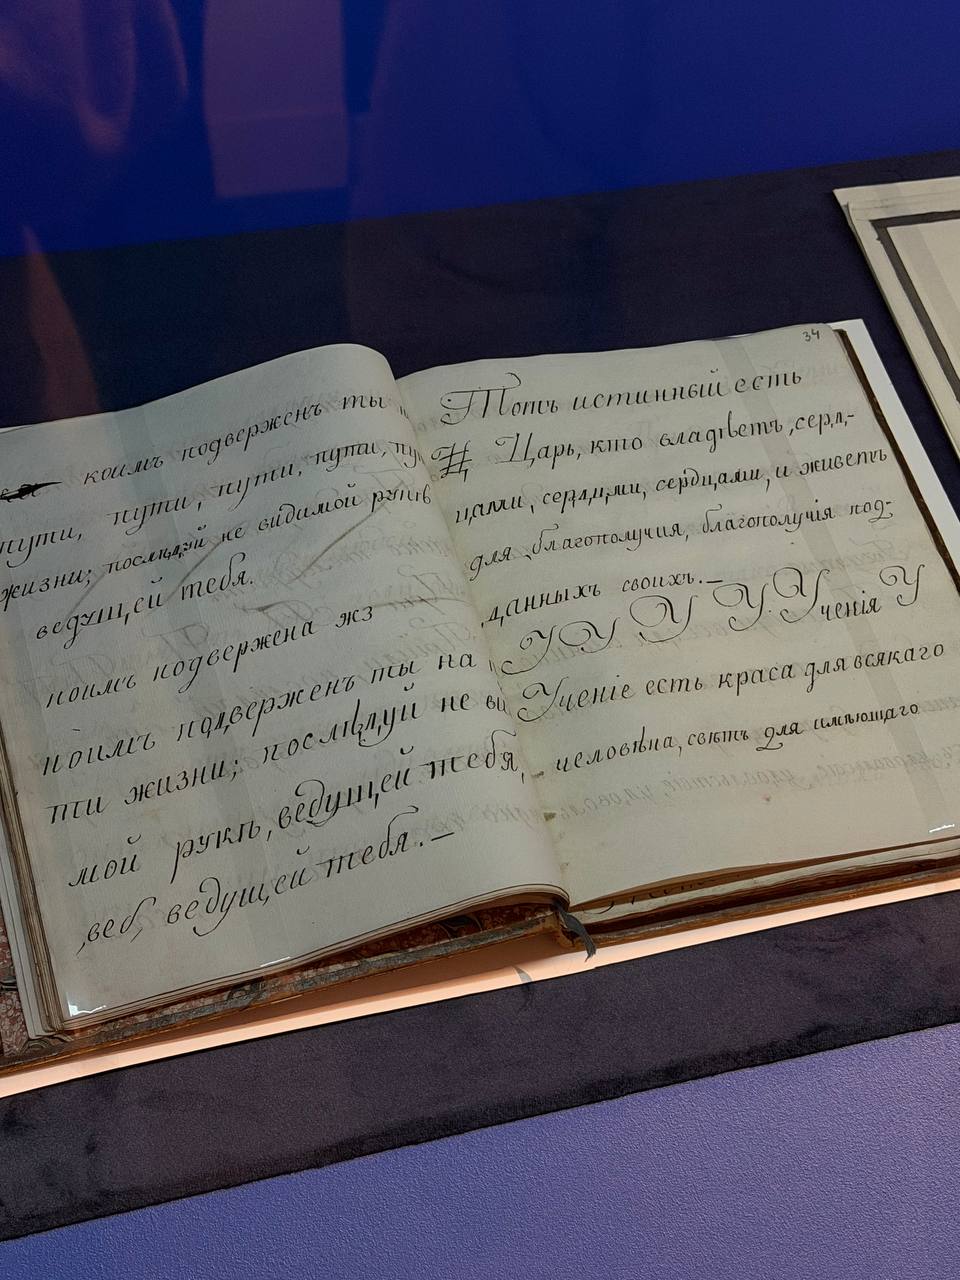 коимъ подверженъ ты
пути, пути, пути, пути, пу
жизни; послѣдуй не видимой рукѣ
ведущей тебя.
коимъ подвержена жз
коимъ подверженъ ты на п
ти жизни; послѣдуй не ви
мой рукѣ, ведущей тебя,
,веб, ведущей тебя. –
34
Тотъ истинный есть
Царь, кто владѣетъ ,серд,-
цами, сердцми, сердцами, и живетъ
для благополучия, благополучія под-
данныхъ своихъ. –
У У У У Ученія У
Ученіе есть краса для всякаго
человѣка, свѣтъ для имѣющаго